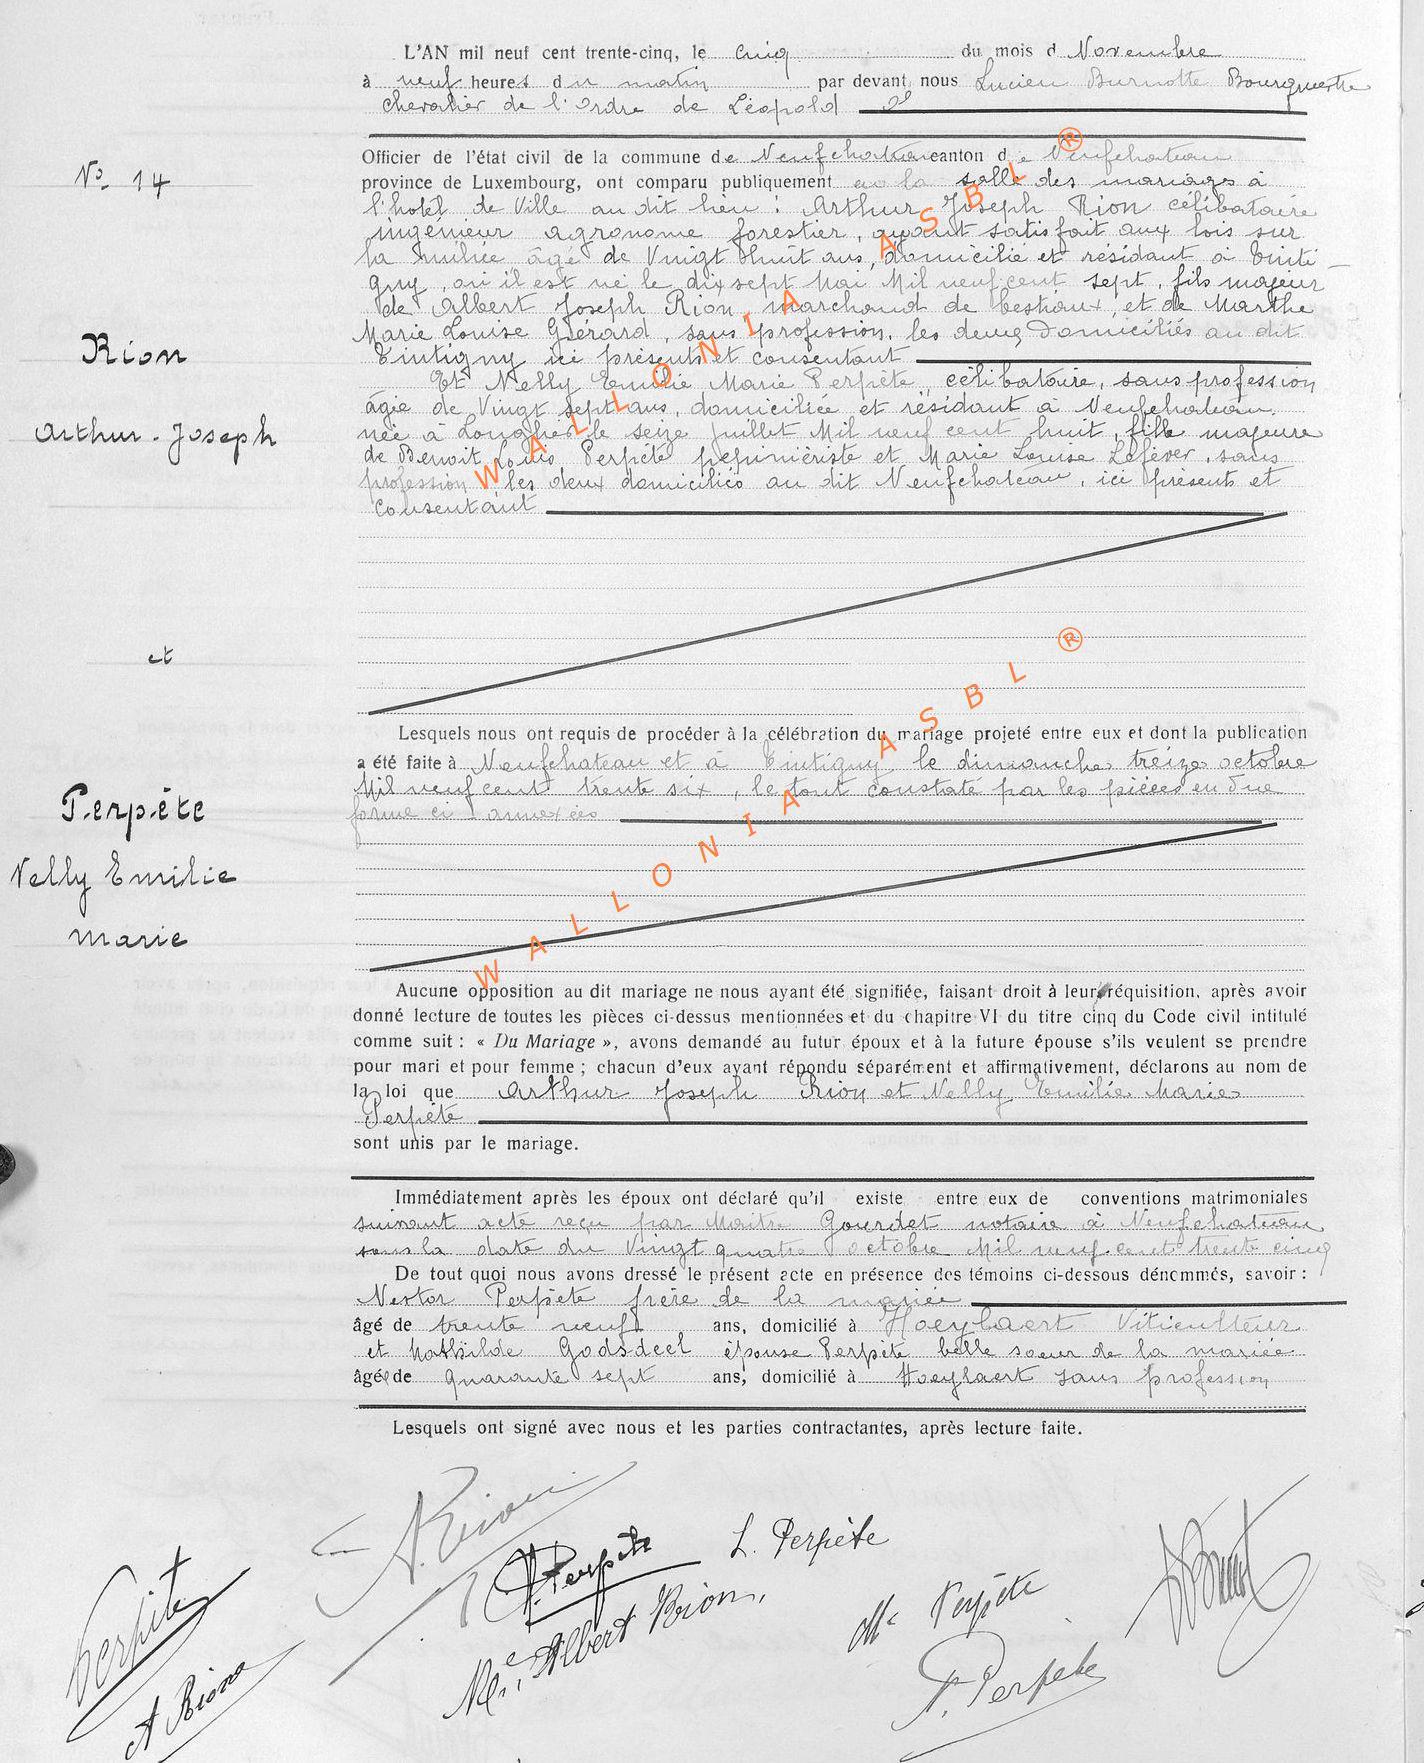 L'AN mil neuf cent trente-cinq, le cinq du mois d Novembre
à neuf heures du matin par devant nous Lucien Burnotte Bourgmestre
chevalier de l'ordre de Léopold
Officier de l'état civil de la commune de Neufchateau canton de Neufchateau
N° 14
province de Luxembourg, ont comparu publiquement en la salle des mariages à
l'hotel de Ville au dit lieu : Arthur Joseph Rion célibataire
ingénieur agronome forestier, ayant satisfait aux lois sur
la milice âgé de Vingt huit ans, domicilié et résidant à Tinti-
gny, où il est né le dix sept Mai Mil neuf cent sept, fils majeur
de Albert Joseph Rion, marchand de bestiaux, et de Marthe
Marie Louise Gérard, sans profession, les deux domiciliés au dit
Rion
Tintigny ici présents et consentant
Et Nelly Emilie Marie Perpête, célibataire, sans profession
âgée de Vingt sept ans, domiciliée et résidant à Neufchateau
Arthur-Joseph
née à Longlier le seize juillet Mil neuf cent huit, fille majeure
de Benoit Perpête pépiniériste et Marie Louise Lefèver, sans
profession les deux domiciliés au dit Neufchateau, ici présents et
consentant
WALLONIA ASBL ®
et
Lesquels nous ont requis de procéder à la célébration du mariage projeté entre eux et dont la publication
a été faite à Neufchateau et à Tintigny le dimanche treize octobre
Mil neuf cent trente six, le tout constaté par les pièces en due
forme ci annexées
Perpête
Nelly Emilie
Marie
WALLONIA ASBL ®
Aucune opposition au dit mariage ne nous ayant été signifiée, faisant droit à leur réquisition, après avoir
donné lecture de toutes les pièces ci-dessus mentionnées et du chapitre VI du titre cinq du Code civil intitulé
comme suit : « Du Mariage », avons demandé au futur époux et à la future épouse s'ils veulent se prendre
pour mari et pour femme ; chacun d'eux ayant répondu séparément et affirmativement, déclarons au nom de
la loi que Arthur Joseph Rion et Nelly Emilie Marie
Perpête
sont unis par le mariage.
Immédiatement après les époux ont déclaré qu'il existe entre eux de conventions matrimoniales
suivant acte reçu par Maitre Gourdet notaire à Neufchateau
sous la date du Vingt quatre octobre Mil neuf cent trente cinq
De tout quoi nous avons dressé le présent acte en présence des témoins ci-dessous dénommés, savoir :
Nestor Perpête frère de la mariée
âgé de trente neuf ans, domicilié à Hoeylaert Viticulteur
et Mathilde Godsdeel épouse Perpête belle soeur de la mariée
âgée de quarante sept ans, domicilié à Hoeylaert sans profession
Lesquels ont signé avec nous et les parties contractantes, après lecture faite.
A. Rion
Perpête
L. Perpête
Perpête
Albert Rion
Perpête
A Rion
Perpête